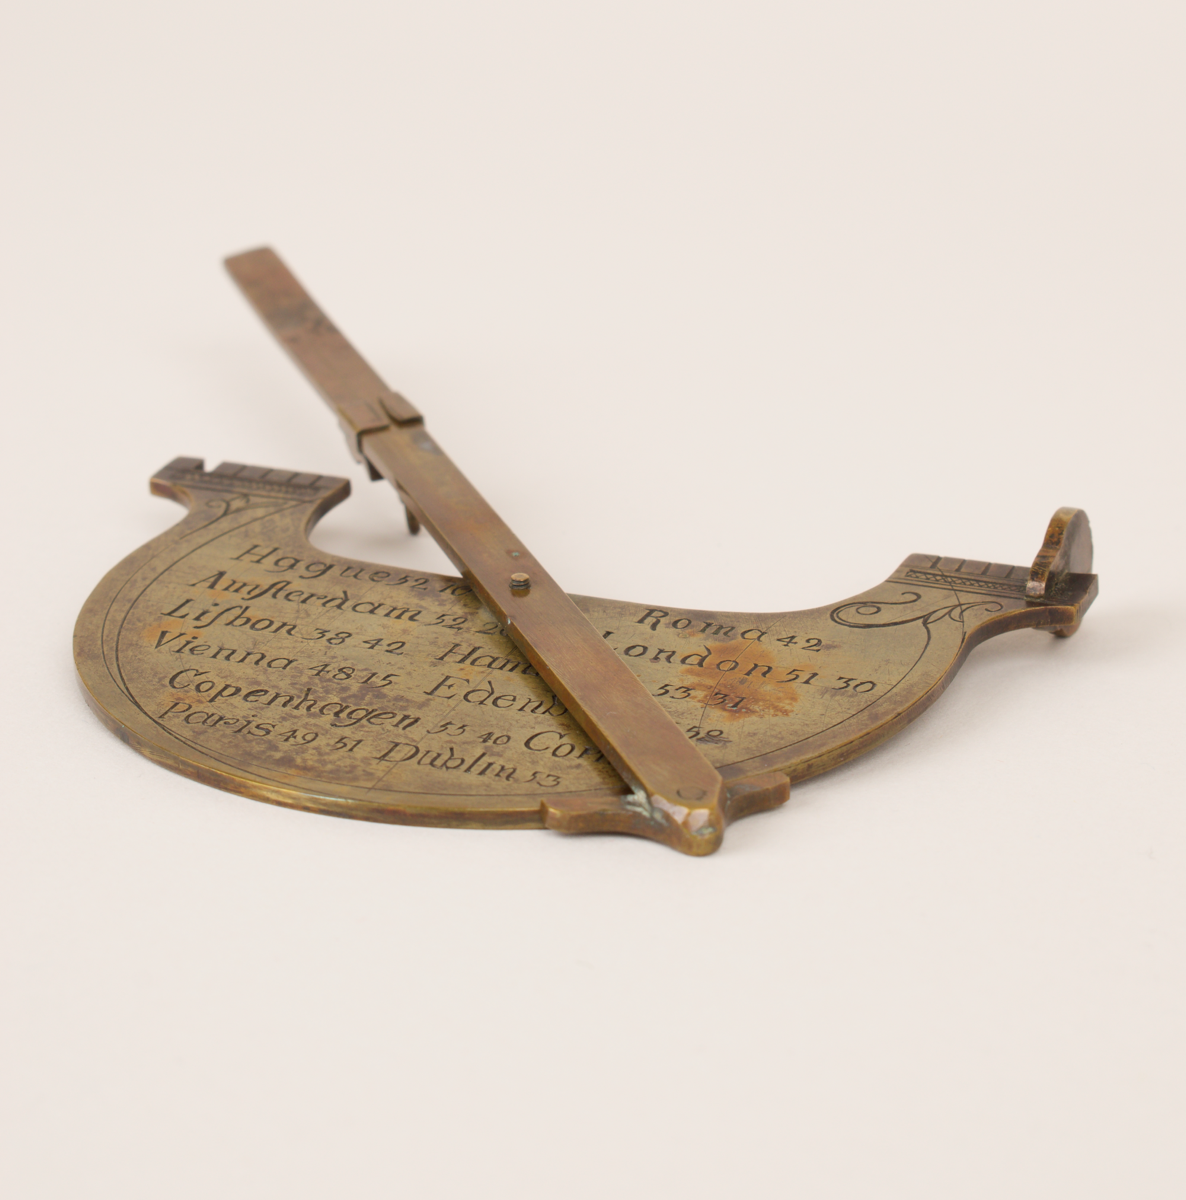 Hague 52 Roma 42
Amſterdam 52 London 51 30
Liſbon 38 42 Ham 53 31
Vienna 48 15 Eden
Copenhagen 55 40 Co
Paris 49 51 Dublin 53